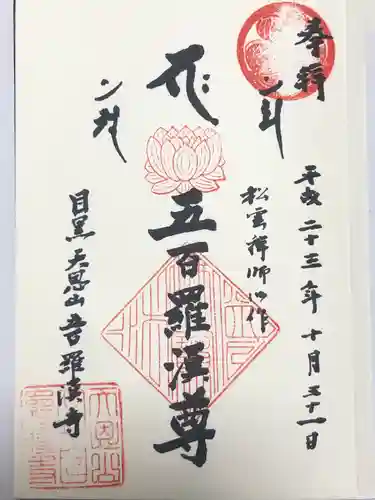 奉拝
平成二十三年十月三十一日
松雲禅師作
五百羅漢尊
目黒 天恩山 五百羅漢寺